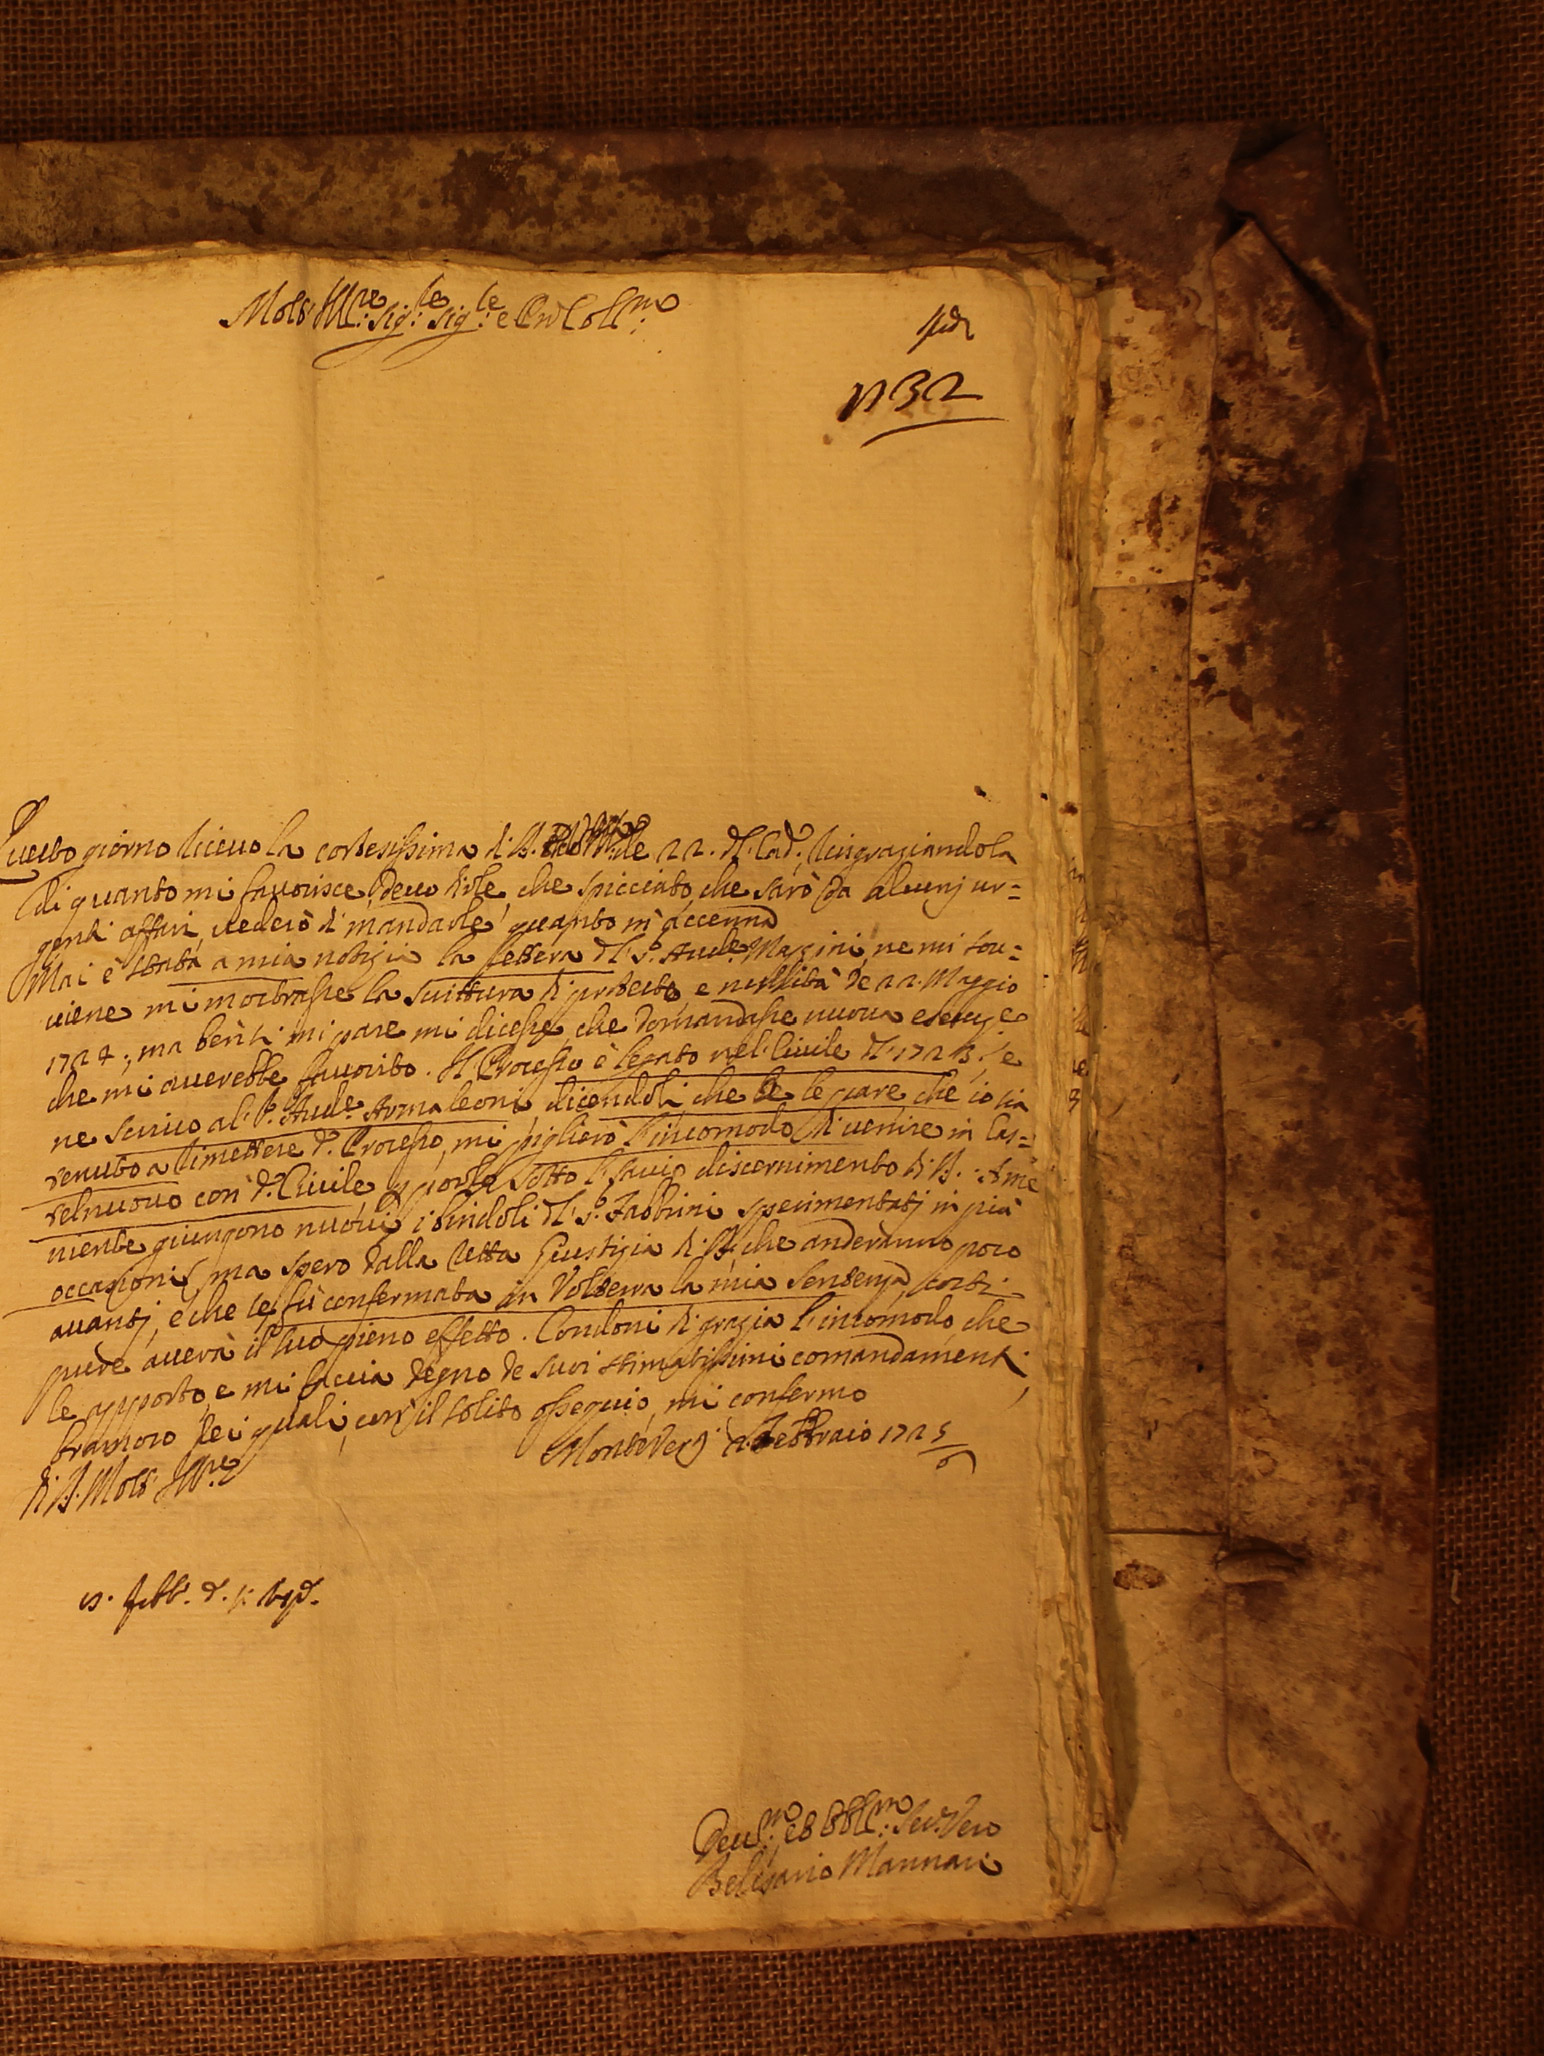 Molt' Ill.re Sig.re Sig.re e P'ron Coll.mo
132
Questo giorno riceuo la cortesissima di V.S. de 22. d. Cad.e, ringraziandola
di quanto mi fauorisce, deuo dirle, che spicciato, che sarò da alcunj ur=
genti affari, uederò di mandarle quanto m' accenna
Mai è stata a mia notizia la lettera del S.r Aud.e Mazzini, ne mi sou=
uiene mi mostrasse la scrittura di protesto, e nullità de 22. Maggio
1724., ma bensì mi pare mi dicesse che domandasse nuova
che mi auerebbe fauorito. Il Processo è legato nel Ciuile d. 1723., e
ne scriuo al S.r Aud.e Armaleoni, dicendoli, che se le pare che io sia
tenuto a rimettere d.o Processo, mi piglierò l'incomodo di uenire in Cas=
telnuouo con d.o Ciuile, e porlo sotto l' sauio discernimento di V.S. A me
niente giungono nuoui i bindoli del S.r Fabbrini sperimentatj in più
occasioni, ma spero dalla retta Giustizia di V.S. che anderanno poco
auantj, e che se fù confermata in Volterra la mia sentenza, costì
pure auerà il suo pieno effetto. Condoni di grazia l'incomodo, che
le apporto, e mi faccia degno de suoi stimatissimi comandamenti,
bramoso dei quali, con il solito ossequio, mi confermo
Di V.S. Molt' Ill.re
Monteverdi 2 Febbraio 1725
Deu.mo et Obbl.mo Ser. Vero
Belisario Mannari